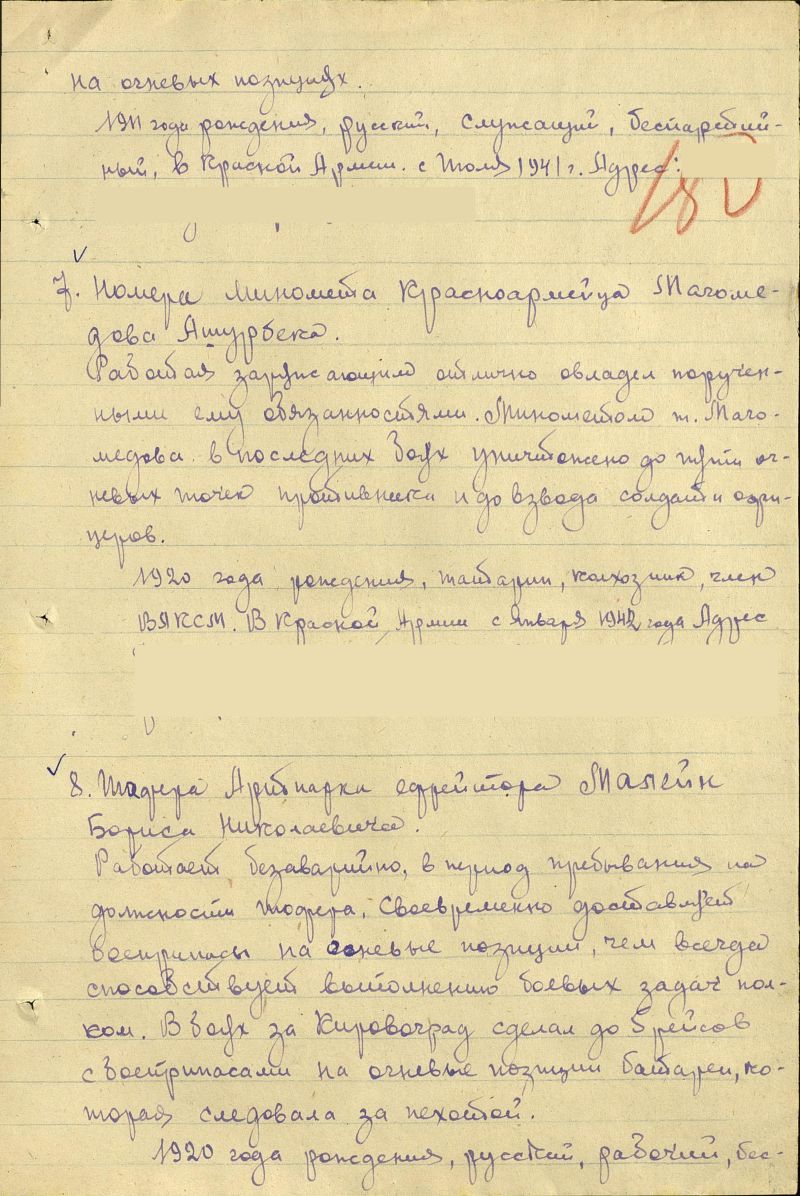 на огневых позициях.
1911 года рождения, русский, служащий, беспартий-
ный, в Красной Армии с Июля 1941 г. Адрес:
7. Номера миномета Красноармейца Магоме-
дова Ашурбека.
Работая заряжающим отлично овладел поручен-
ными ему обязанностями. Минометом т. Маго-
медова в последних боях уничтожено до пяти ог-
невых точек противника и до взвода солдат и офи-
церов.
1920 года рождения, татарин, колхозник, член
ВЛКСМ. В Красной Армии с января 1942 года Адрес
8. Шофера Артпарка ефрейтора Малейк
Бориса Николаевича.
Работает безаварийно, в период пребывания на
должности шофера. Своевременно доставляет
боеприпасы на огневые позиции, чем всегда
способствует выполнению боевых задач пол-
ком. В боях за Кировоград сделал до 5 рейсов
с боеприпасами на огневые позиции батареи, ко-
торая следовала за пехотой.
1920 года рождения, русский, рабочий, бес-